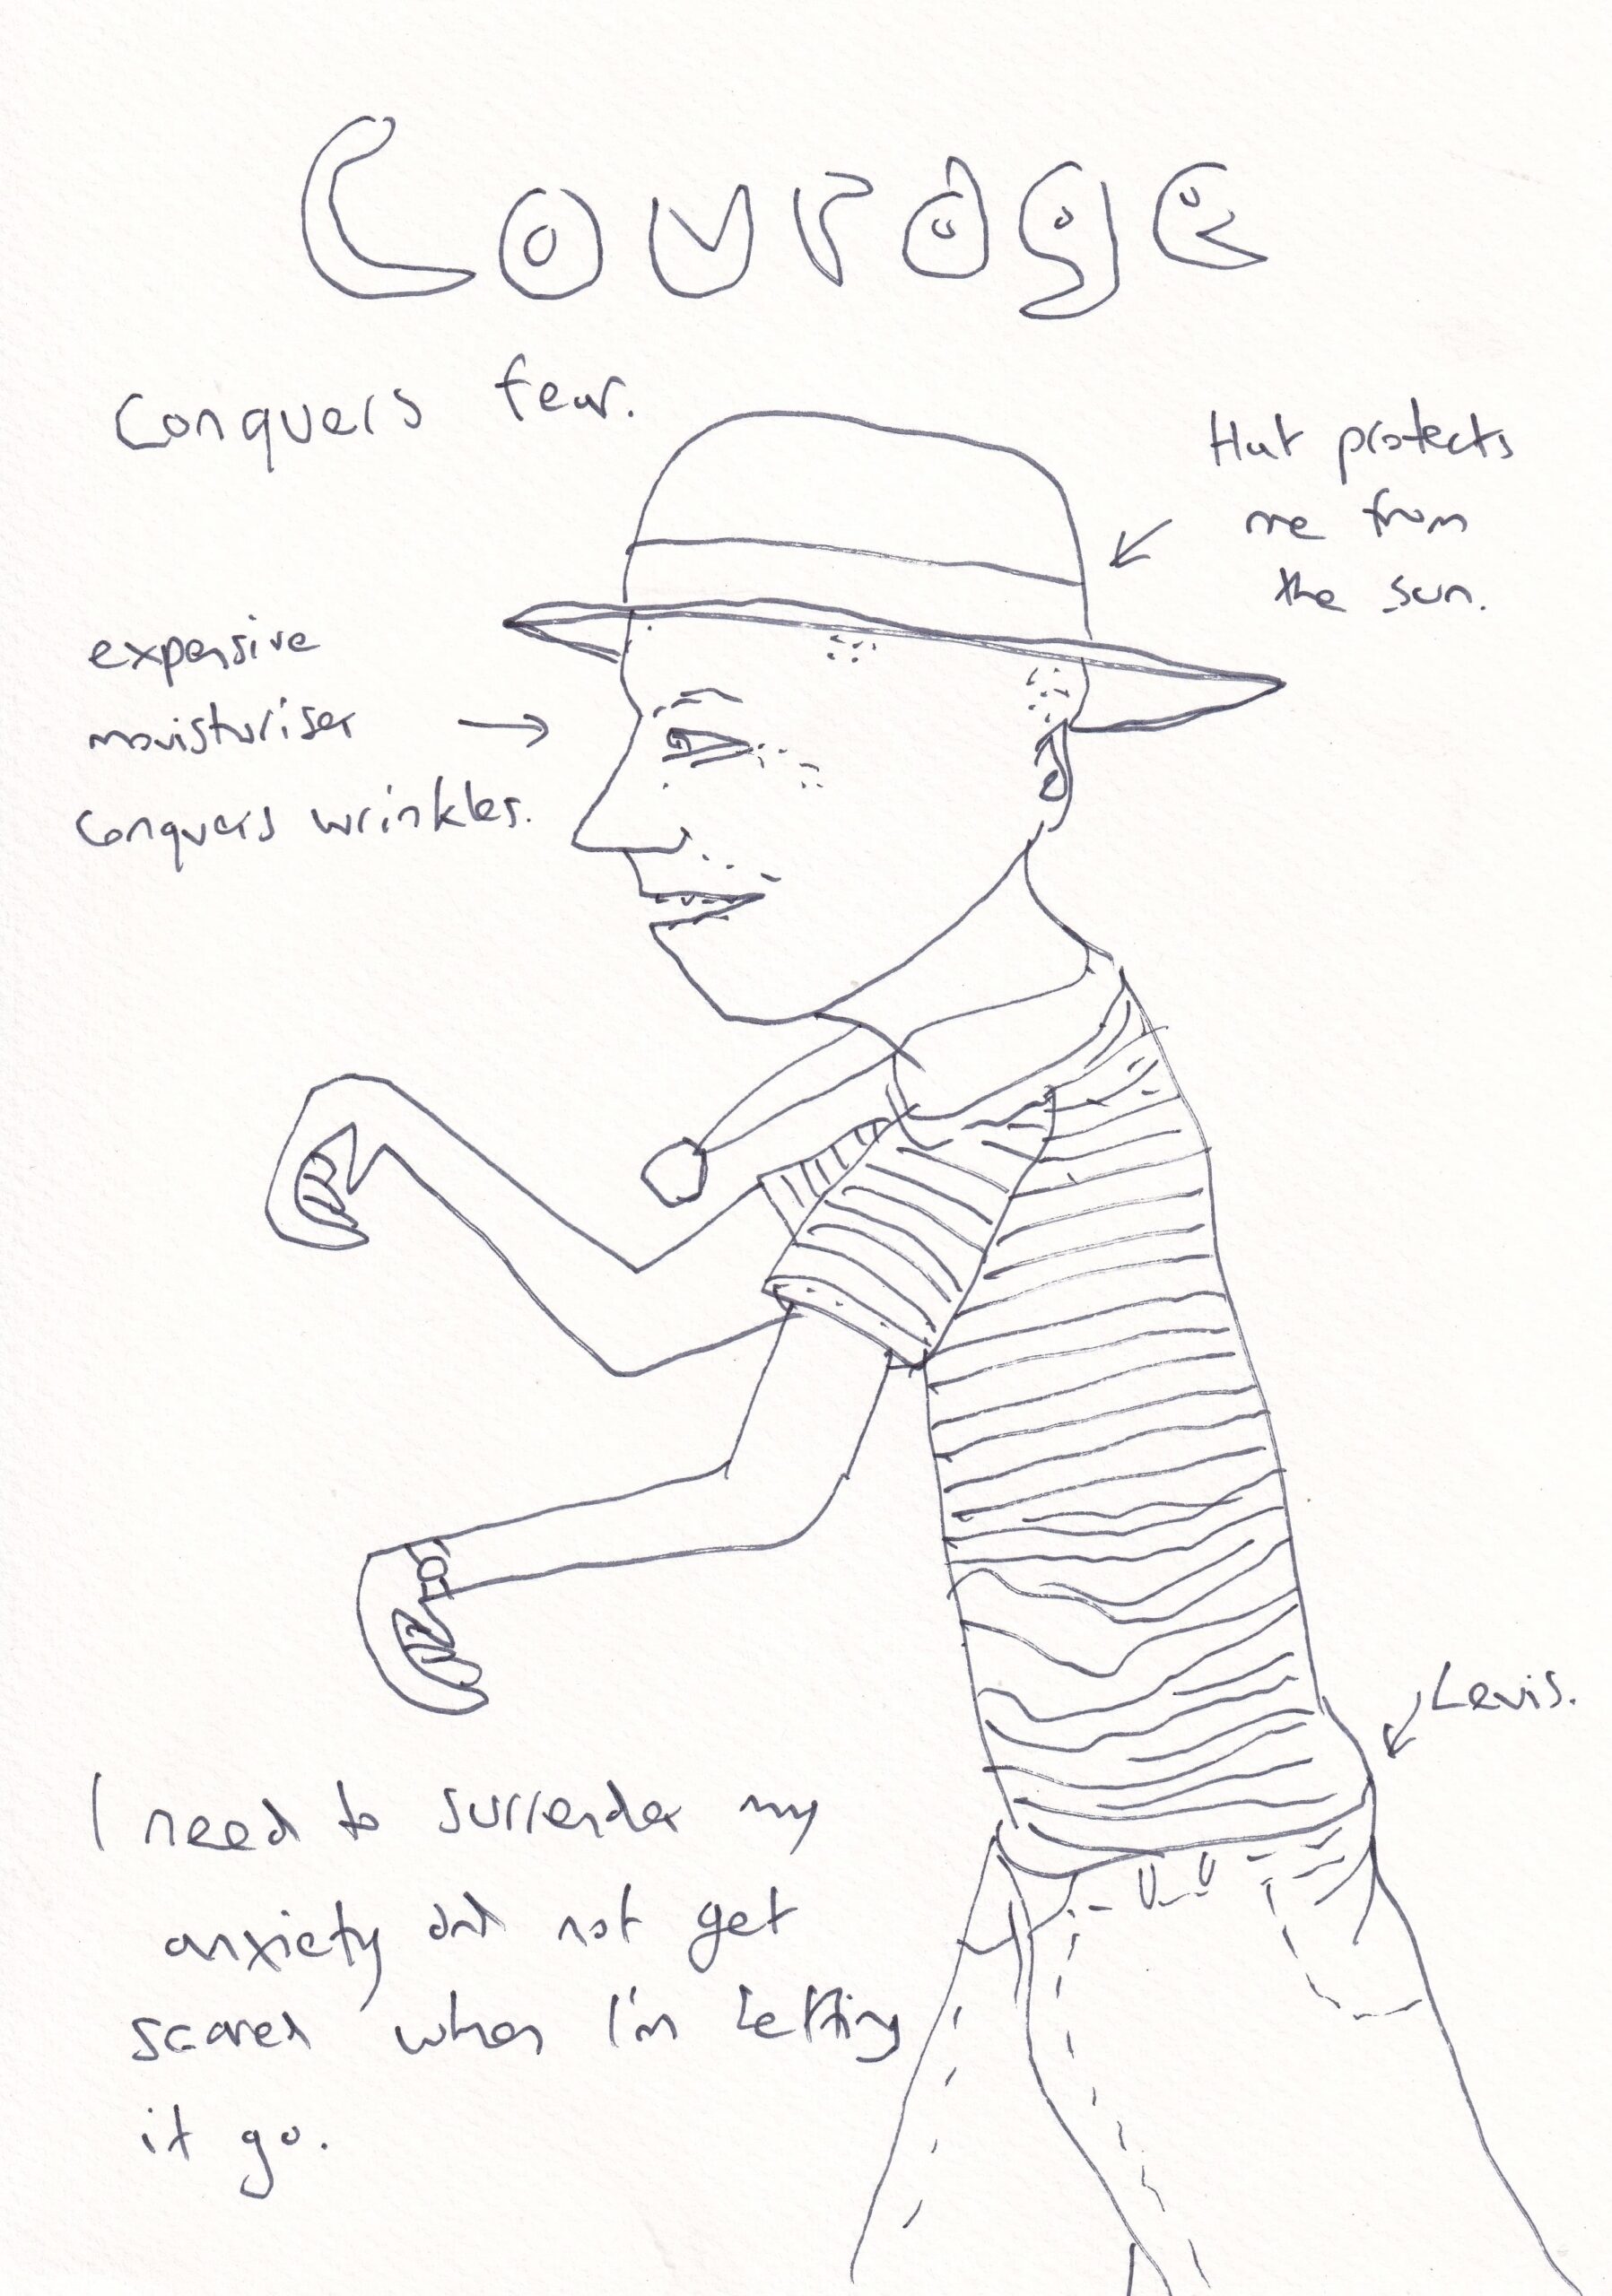 Courage
Conquers fear.
Hat protects
me from
the sun.
expensive
mouisturiser
conquers wrinkles.
Levis.
I need to surrender my
anxiety and not get
scared when I'm letting
it go.